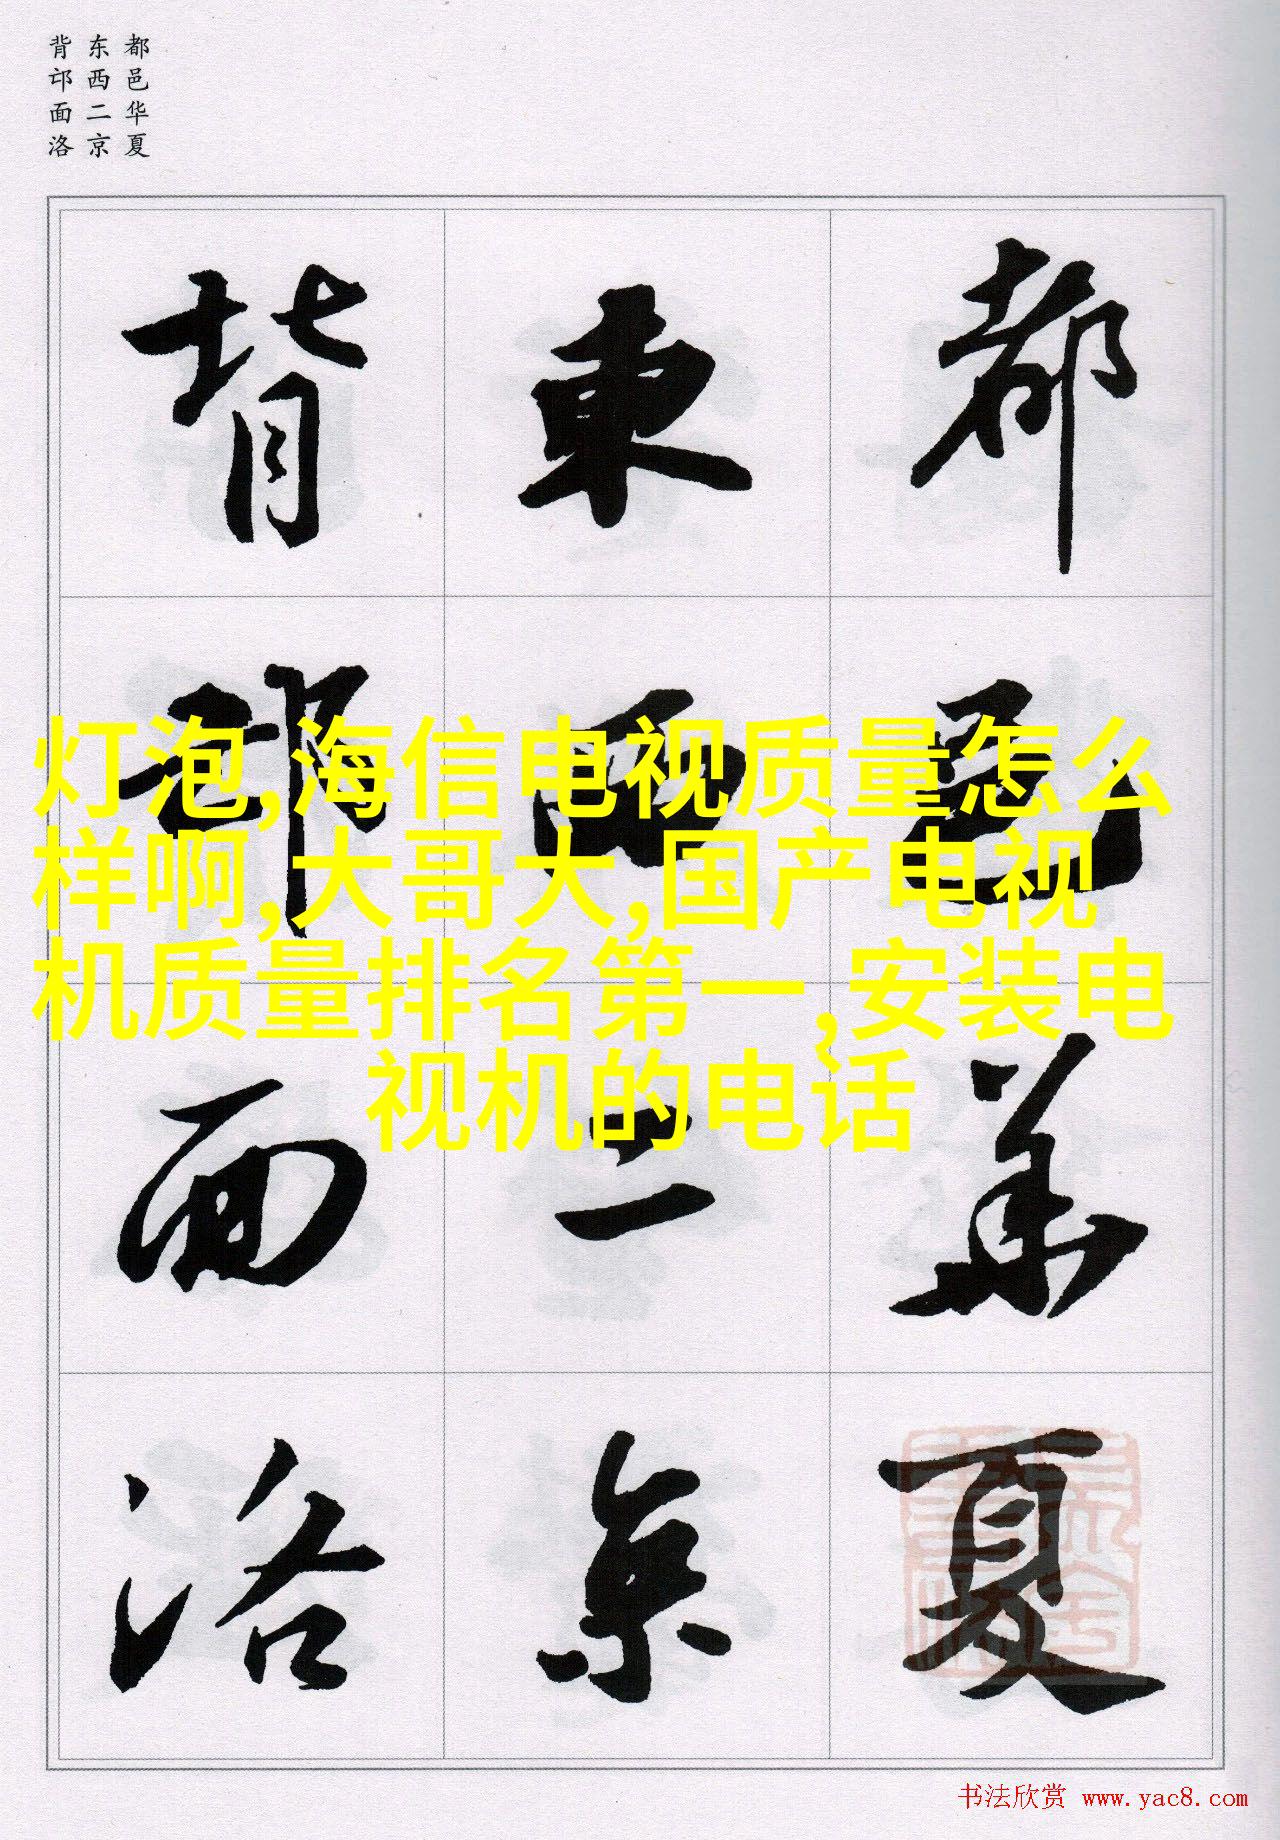 都邑华夏
东西二京
背邙面洛
都邑華夏
東西二京
背邙面洛
灯泡,海信电视质量怎么
样啊,大哥大,国产电视
机质量排名第一,安装电
视机的电话
书法欣赏 www.yac8.com